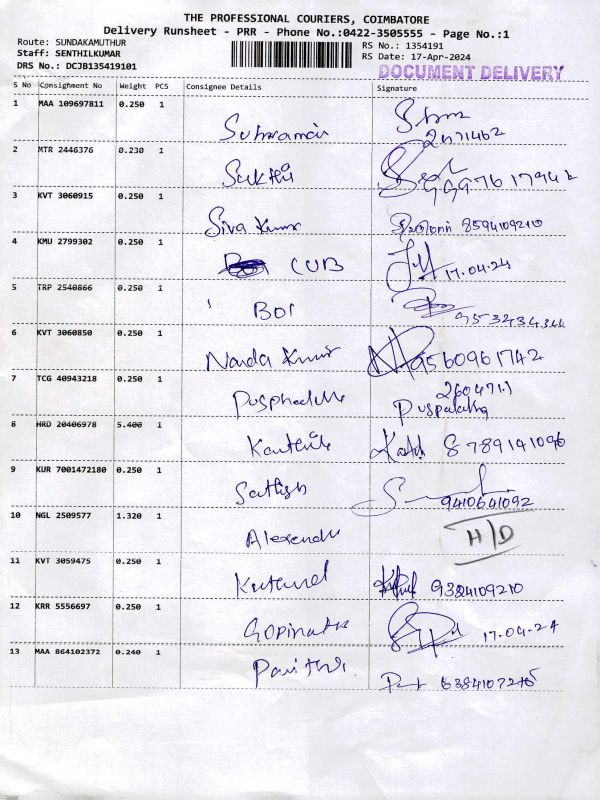 THE PROFESSIONAL COURIERS, COIMBATORE
Delivery Runsheet - PRR - Phone No.:0422-3505555 - Page No.:1
Route: SUNDAKAMUTHUR
Staff: SENTHILKUMAR
DRS No.: DCJB135419101
RS No.: 1354191
RS Date: 17-Apr-2024
DOCUMENT DELIVERY
S No Consignment No Weight PCS Consignee Details Signature
1 MAA 109697811 0.250 1
2 MTR 2446376 0.230 1 Sakthi
3 KVT 3060915 0.250 1 Siva Kumar 8594109210
4 KMU 2799302 0.250 1 CUB 17.04.24
5 TRP 2540866 0.250 1 BOI
6 KVT 3060850 0.250 1 Nanda Kumar 9560961742
7 TCG 40943218 0.250 1
8 HRD 20406978 5.400 1 8789141096
9 KUR 7001472180 0.250 1 Sathish 9410641092
10 NGL 2509577 1.320 1 H/D
11 KVT 3059475 0.250 1 9384109210
12 KRR 5556697 0.250 1 Gopinath 17.04.24
13 MAA 864102372 0.240 1